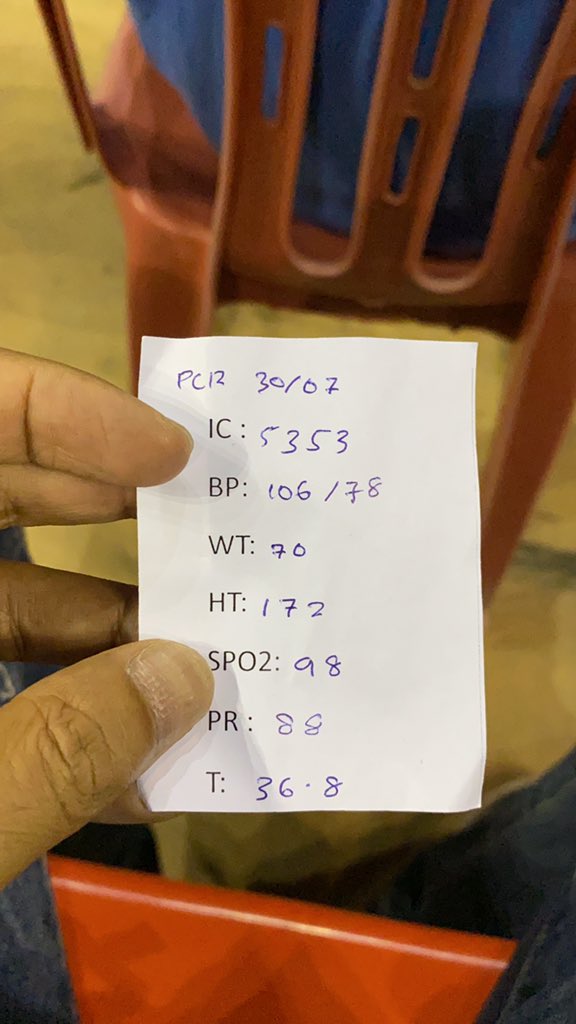 PCR 30/07
IC: 5353
BP: 106/78
WT: 70
HT: 172
SPO2: 98
PR: 88
T: 36.8